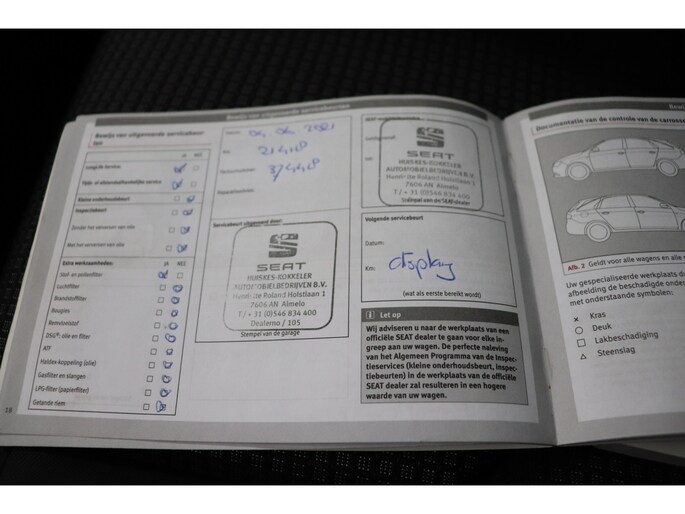 Bewijs van uitgevoerde servicebeurten
Bewijs van uitgevoerde servicebeur-
ten
JA NEE
LongLife-Service
Tijds- of afstandsafhankelijke service
Kleine onderhoudsbeurt
Inspectiebeurt
Zonder het verversen van olie
Met het verversen van olie
Extra werkzaamheden: JA NEE
Stof- en pollenfilter
Luchtfilter
Brandstoffilter
Bougies
Remvloeistof
DSG®: olie en filter
ATF
Haldex-koppeling (olie)
Gasfilter en slangen
LPG-filter (papierfilter)
Getande riem
18
Datum: 04.06.2021
Km: 21418
37448
Servicebeurt uitgevoerd door:
SEAT
HUISKES-KOKKELER
AUTOMOBIELBEDRIJVEN B.V.
Henri de Roland Hoistlaan 1
7606 AN Almelo
T / + 31 (0)546 834 400
Dealerno / 105
Stempel van de garage
SEAT
HUISKES-KOKKELER
AUTOMOBIELBEDRIJVEN B.V.
Henri de Roland Hoistlaan 1
7606 AN Almelo
T / + 31 (0)546 834 400
Stempel van de SEAT-dealer
Volgende servicebeurt
Datum:
Km: display
(wat als eerste bereikt wordt)
i Let op
Wij adviseren u naar de werkplaats van een
officiële SEAT dealer te gaan voor elke in-
greep aan uw wagen. De perfecte naleving
van het Algemeen Programma van de Inspec-
tieservices (kleine onderhoudsbeurt, inspec-
tiebeurten) in de werkplaats van de officiële
SEAT dealer zal resulteren in een hogere
waarde van uw wagen.
Documentatie van de controle van de carrosse
Afb. 2 Geldt voor alle wagens en alle
Uw gespecialiseerde werkplaats
afbeelding de beschadigde onde
met onderstaande symbolen:
× Kras
○ Deuk
□ Lakbeschadiging
△ Steenslag